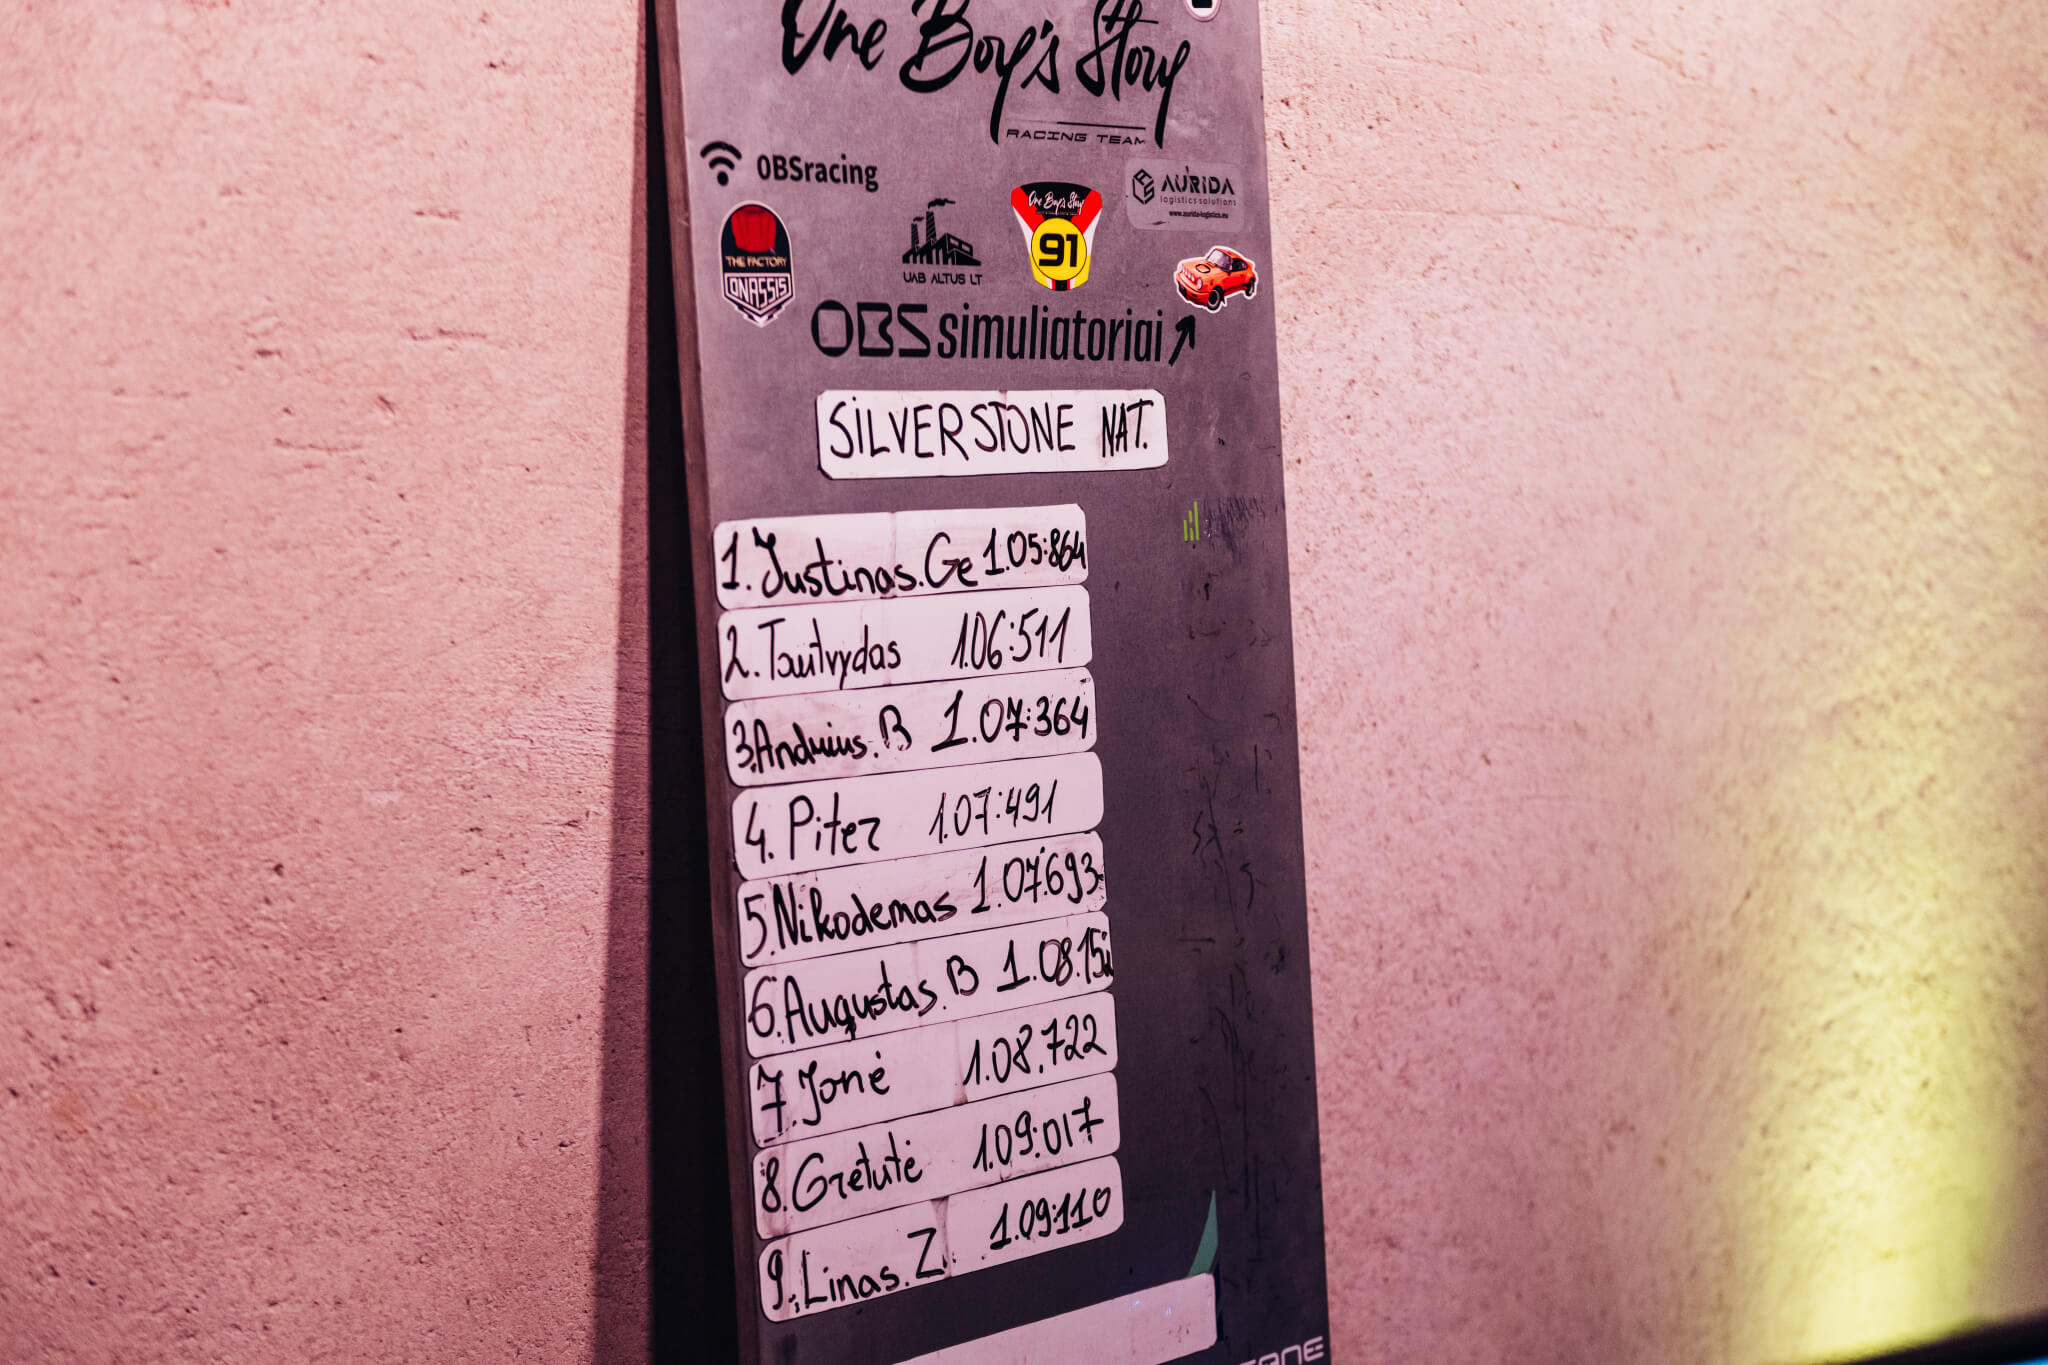 One Boy's Story
RACING TEAM
OBSracing
AURIDA
logistics solutions
www.aurida-logistics.eu
THE FACTORY
ONASSIS
UAB ALTUS LT
One Boy's Story
91
OBS simuliatoriai
SILVERSTONE NAT.
1. Justinas.Ge 1.05:864
2. Tautvydas 1.06:511
3. Andrius.B 1.07:364
4. Piter 1.07:491
5. Nikodemas 1.07:693
6. Augustas.B 1.08.15
7. Jonė 1.08.722
8. Gretutė 1.09:017
9. Linas.Z. 1.09:110